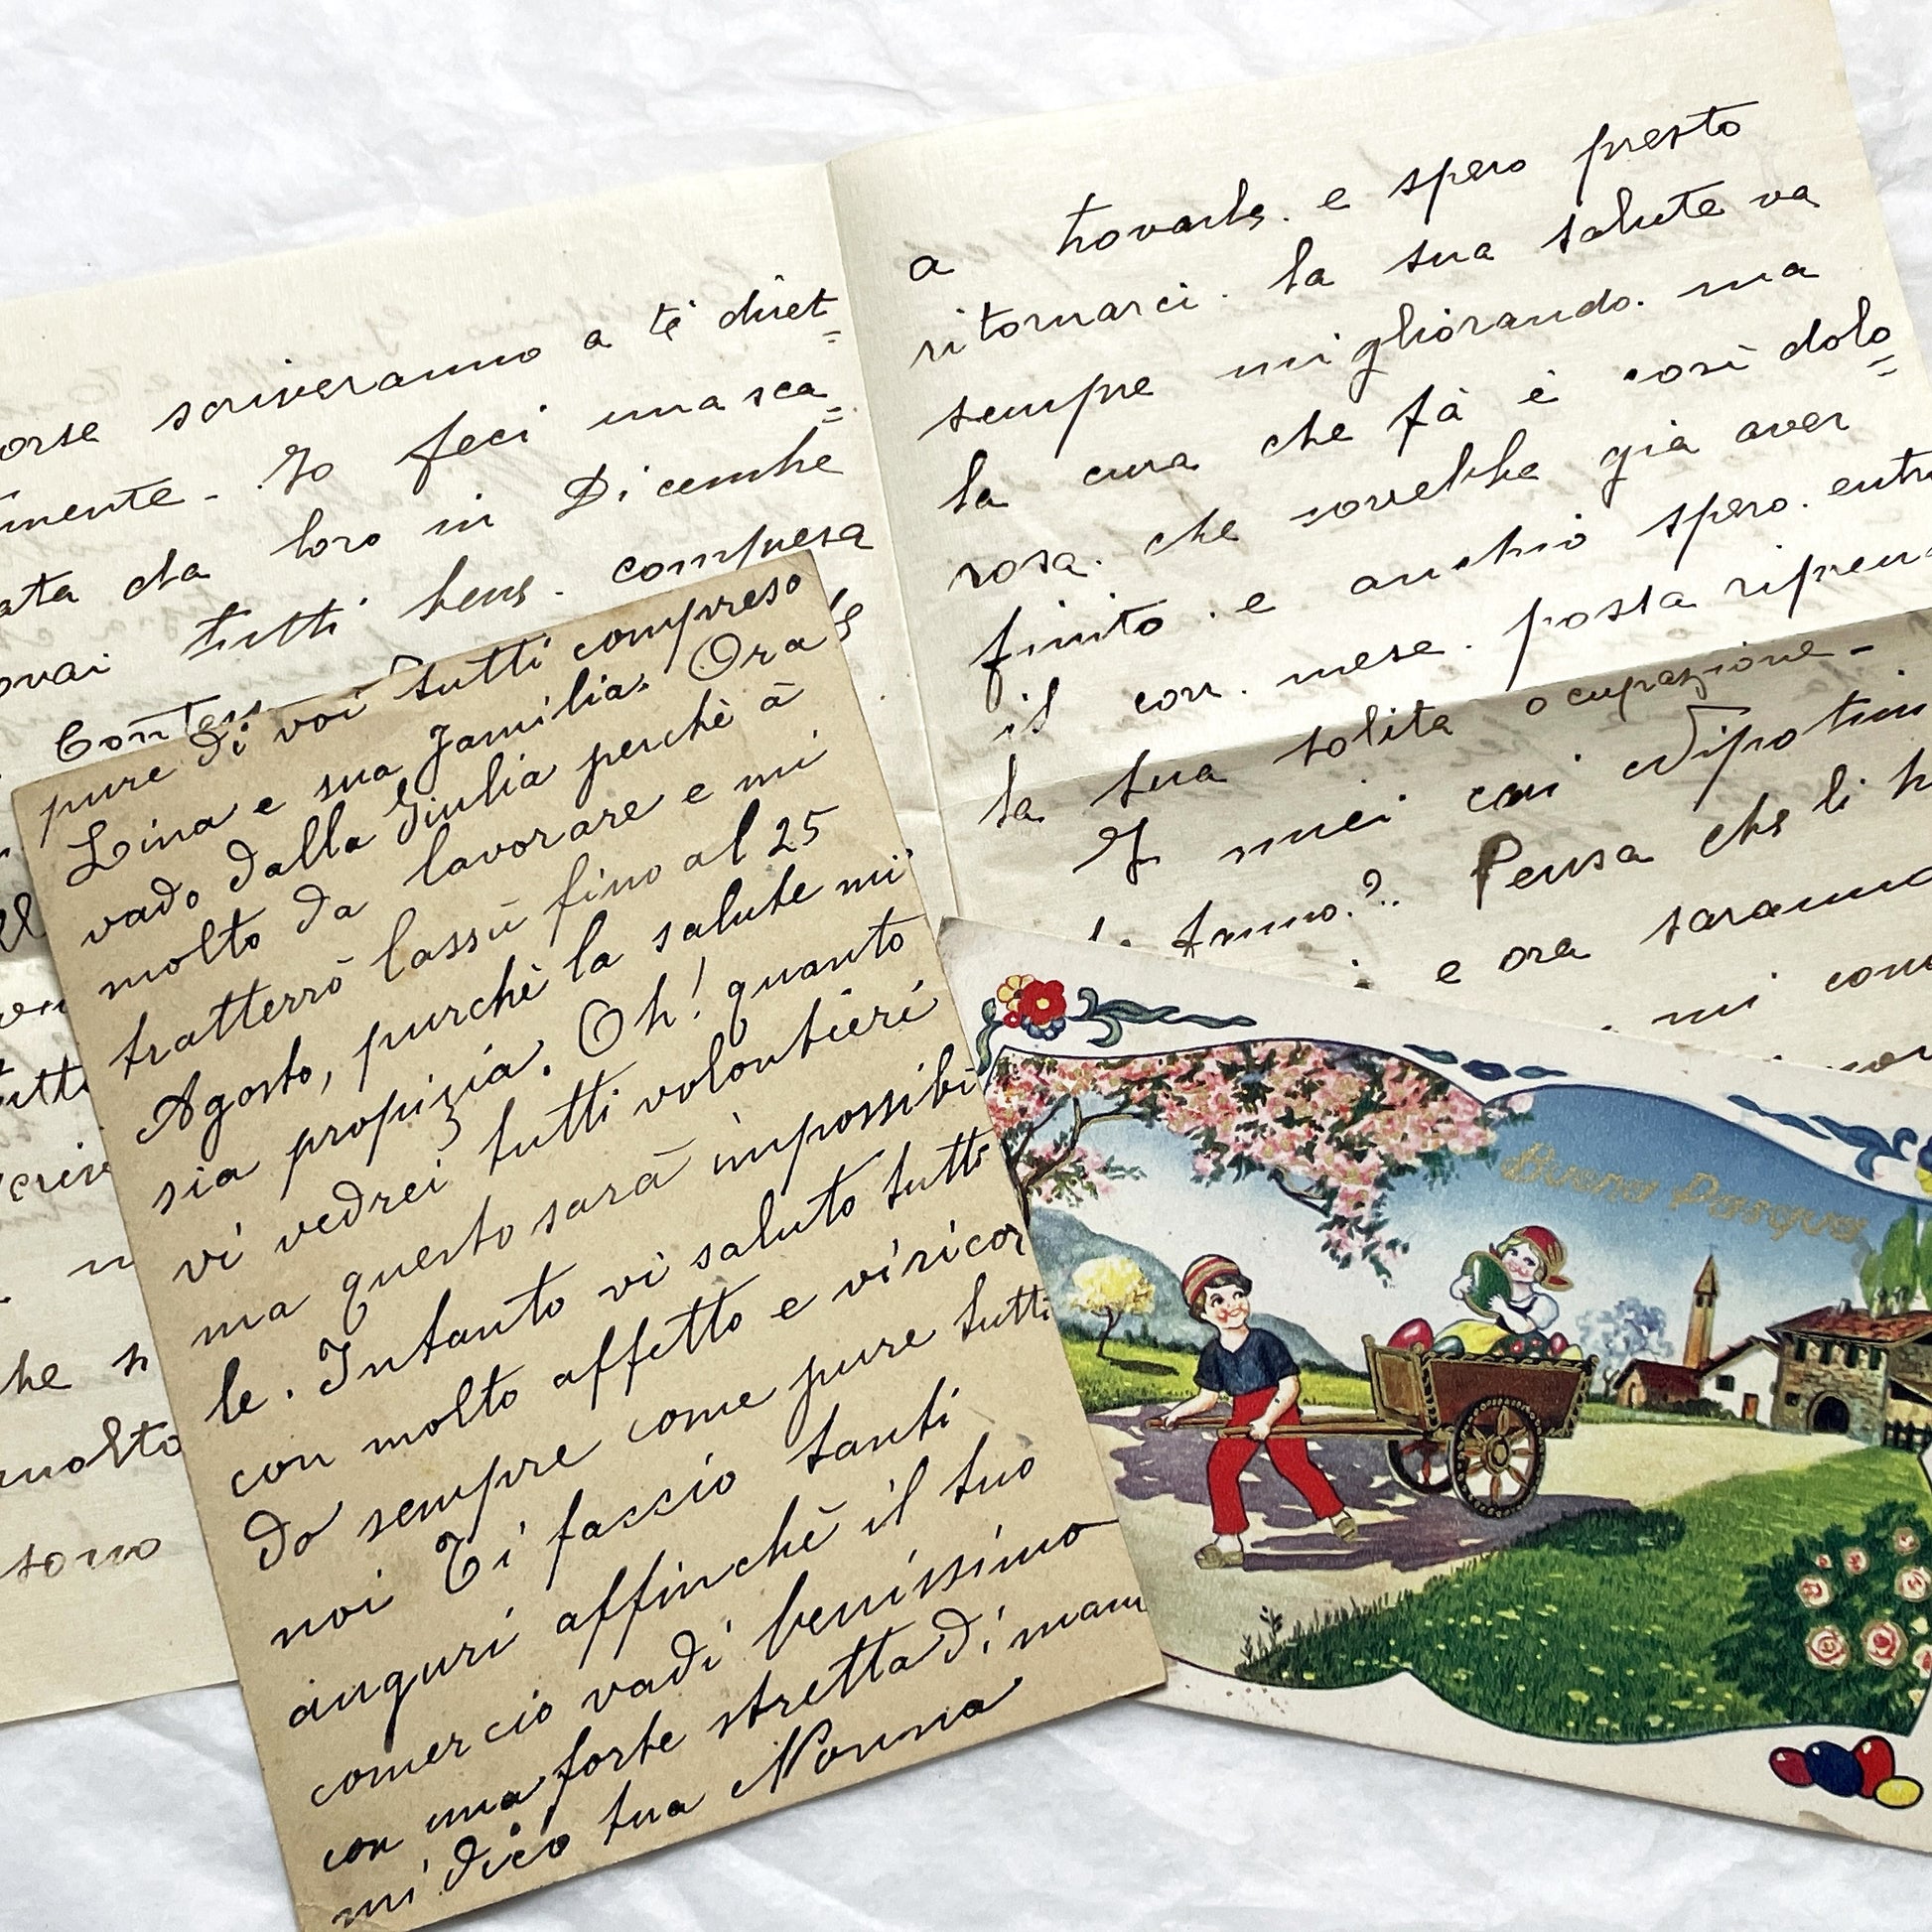 scriveranno a te diret=
Io feci una sca=
loro in Dicembre
tutti bene. compresa
a trovarle. e spero presto
ritornarci. la sua salute va
sempre migliorando. ma
la cura che fà è così dolo=
rosa. che vorrebbe già aver
finito. e anchio spero. entro
il corr. mese. possa
la sua solita ocupazione-
I miei cari Nipotini
Pensa che li
e ora saranno
mi
pure di voi tutti compreso
Lina e sua Famiglia. Ora
vado dalla Giulia perchè à
molto da lavorare e mi
tratterrò lassù fino al 25
Agosto, purchè la salute mi
sia propizia. Oh! quanto
vi vedrei tutti volontieri
ma questo sarà impossibi
le. Intanto vi saluto tutti
con molto affetto e vi ricor
do sempre come pure tutti
noi Ti faccio tanti
auguri affinchè il tuo
comercio vadi benissimo
con una forte stretta di
mi dico tua Nonna
molto
sono
Buona Pasqua